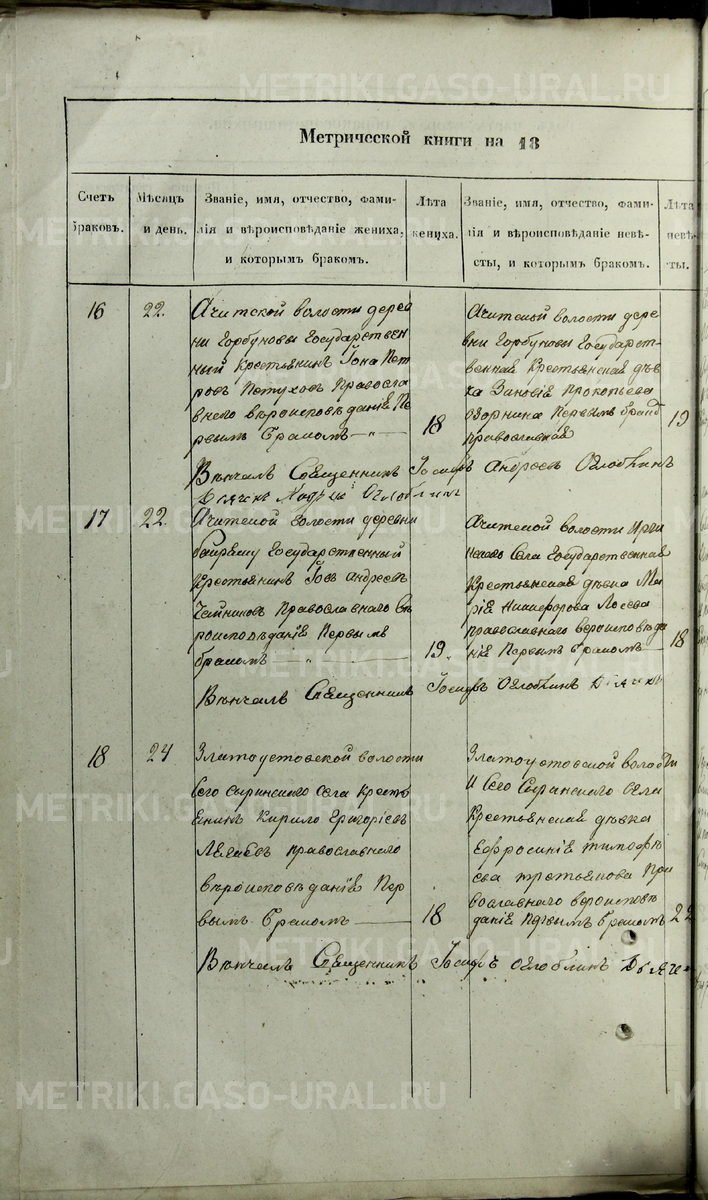 METRIKI.GASO-URAL.RU
Метрической книги на 18
Счетъ браковъ.
Мѣсяцъ и день.
Званіе, имя, отчество, фами-
лія и вѣроисповѣданіе жениха,
и которымъ бракомъ.
Лѣта жениха.
Званіе, имя, отчество, фами-
лія и вѣроисповѣданіе невѣ-
сты, и которымъ бракомъ.
Лѣта невѣ-
ты.
16
22.
Ачитской волости дерев
ни Горбуновы Государствен
ный Крестьянинъ Іона Пет
ровъ Петуховъ Правосла
внаго вѣроисповѣданія Пе
рвымъ Бракомъ
18
Ачитской волости дере
вни Горбуновы Государст-
венная Крестьянская дѣв
ка Зиновія Прокопьева
Первымъ
православная
19
Вѣнчалъ Священникъ Іосифъ Андреевъ Оглоблинъ
Оглоблин
17
22.
Ачитской волости деревни
Государственный
Крестьянинъ Іовъ Андреевъ
Чайниковъ Православнаго вѣ
роисповѣданія Первымъ
бракомъ
19.
Ачитской волости
Села Государственная
Крестьянская дѣвка Ма
рія Никифорова Лосева
православнаго вероисповѣда
нія Первымъ бракомъ
18
Вѣнчалъ Священникъ Іосифъ Оглоблинъ
18
24
Златоустовской волости
Сего Сыринскаго Села Кресть
янинъ Кирило Григоріевъ
православнаго
вѣроисповѣданія Пер
вымъ бракомъ
18
Златоустовской волости
и Сего Сыринскаго Села
Крестьянская дѣвка
Ефросинія Тимофѣ
ева Третьякова Пра
вославнаго вероисповѣ
данія Первымъ бракомъ
22
Вѣнчалъ Священникъ Іосифъ Оглоблинъ